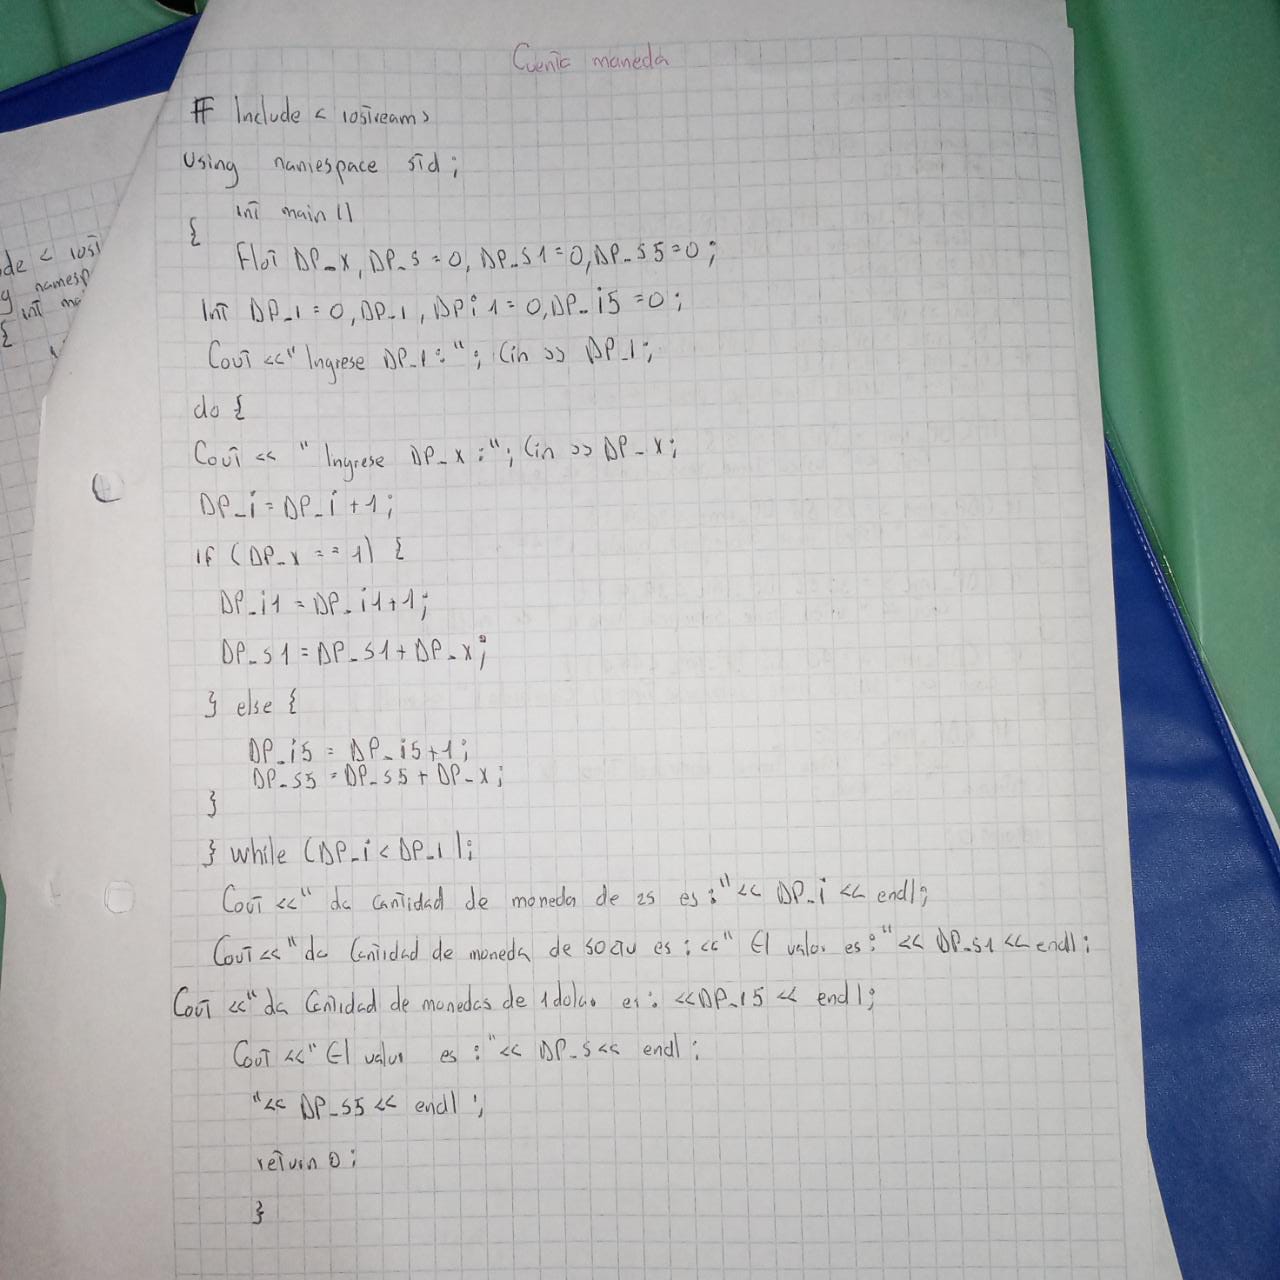 Cuenta maneda
# Include < iostream>
Using namespace std;
int main ()
{
Flot DP_x, DP_s = 0, DP_s1 = 0, DP_s5 = 0;
Int DP_i = 0, DP_1, DPi1 = 0, DP_i5 = 0;
Cout <<" Ingrese DP_1:"; Cin >> DP_1;
do {
Cout << " Ingrese DP_x :"; Cin >> DP_x;
DP_i = DP_i + 1;
if (DP_x == 1) {
DP_i1 = DP_i1+1;
DP_s1 = DP_s1 + DP_x;
} else {
DP_i5 = DP_i5+1;
DP_s5 = DP_s5 + DP_x;
}
} while (DP_i < DP_1);
Cout <<" da cantidad de moneda de 25 es :"<< DP_i << endl;
Cout <<"da Cantidad de moneda de 50ctv es : <<" El valor es :"<< DP_s1 << endl;
Cout <<"da Cantidad de monedas de 1 dolar es: <<DP_i5 << endl;
Cout <<" El valor es :"<< DP_s << endl;
"<< DP_s5 << endl ;
return 0;
}
de < iost
g namesp
int ma
{